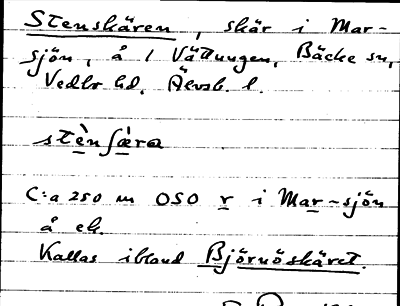 Stenskären, skär i Mar-
sjön, å 1 Vättungen, Bäcke sn,
Vedbo hd. Älvsb. l.
stènʃæra
C:a 250 m OSO r i Mar-sjön
å ek.
Kallas ibland Björnöskäret.